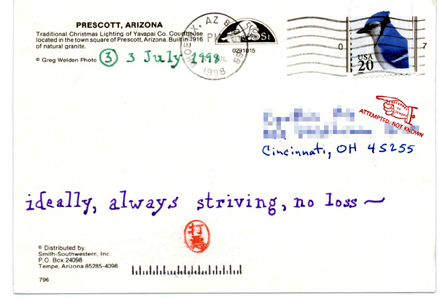 PRESCOTT, ARIZONA
Traditional Christmas Lighting of Yavapai Co. Courthouse
located in the town square of Prescott, Arizona. Built in 1916
of natural granite.
© Greg Weldon Photo
3 3 July 1998
AZ
PM
1998
USA
20
0 7
ATTEMPTED, NOT KNOWN
Cincinnati, OH 45255
ideally, always striving, no loss~
© Distributed by:
Smith-Southwestern, Inc.
P.O. Box 24098
Tempe, Arizona 85285-4098
796